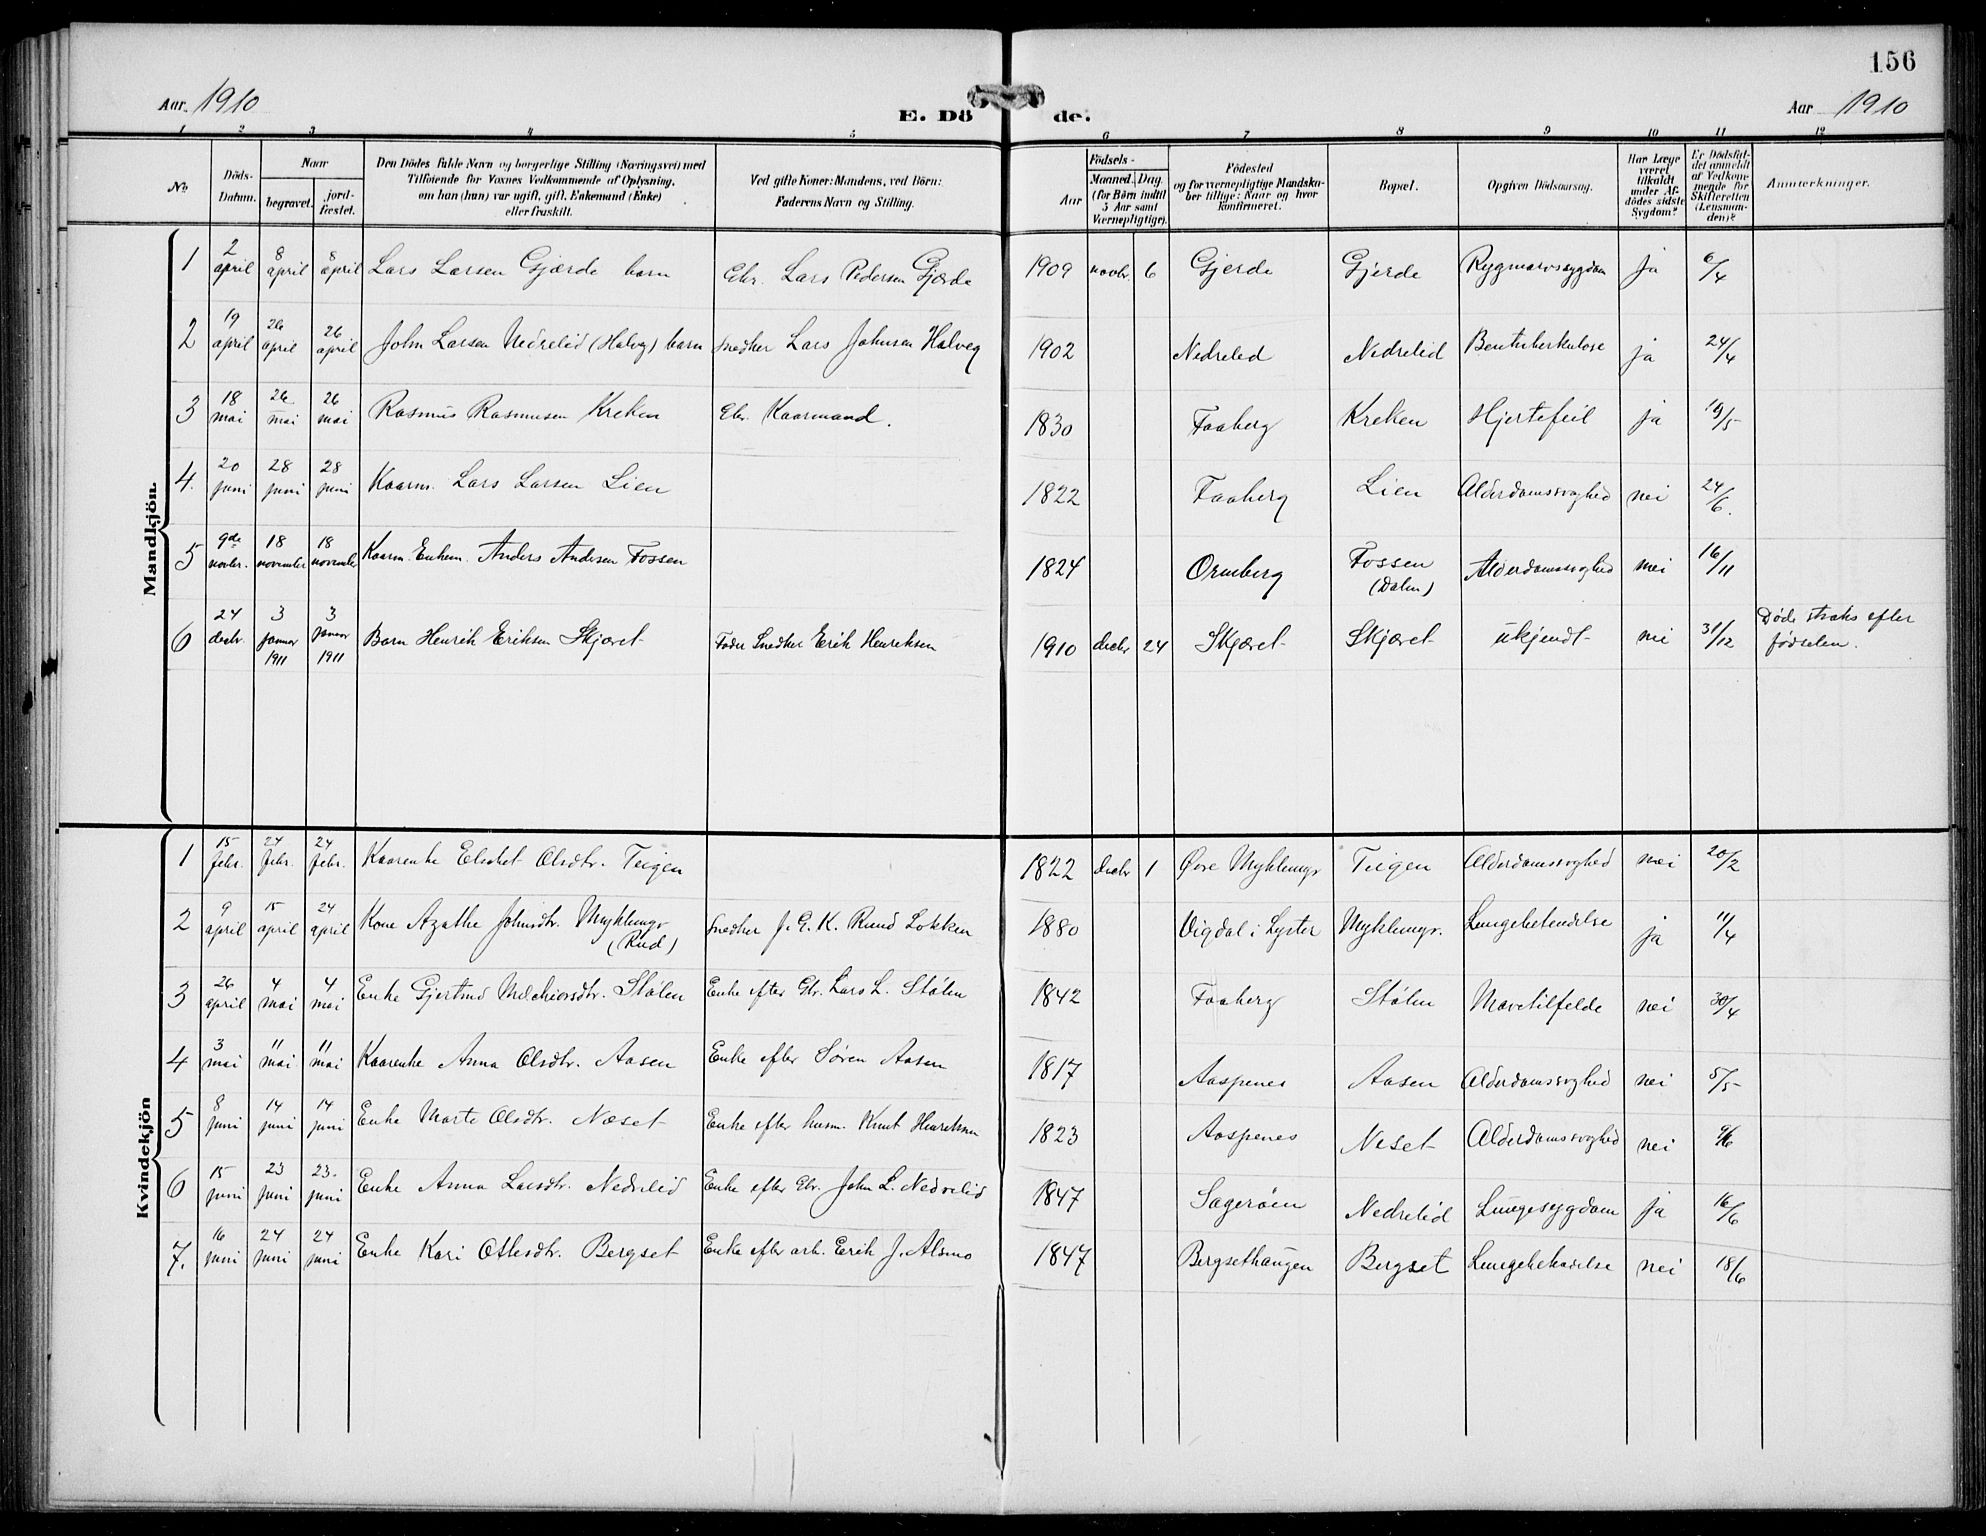 156
Aar 1910
E. Döde.
Aar 1910
1 2 3 4 5 6 7 8 9 10 11 12
No
Döds-Datum.
Naar
begravet.
jord-fæstet.
Den Dödes fulde Navn og borgerlige Stilling (Næringsvei) med Tilföiende for Voxnes Vedkommende af Oplysning, om han (hun) var ugift, gift, Enkemand (Enke) eller fraskilt.
Ved gifte Koner: Mandens, ved Börn: Faderens Navn og Stilling.
Födsels-
Aar
Maaned. Dag
(for Börn indtil 5 Aar samt Værnepligtige).
Födested og for værnepligtige Mandskaber tillige: Naar og hvor konfirmeret.
Bopæl.
Opgiven Dödsaarsag.
Har Læge været tilkaldt under Afdödes sidste Sygdom?
Er Dödsfaldet anmeldt af Vedkommende for Skifteretten (Lensmanden)?
Anmærkninger.
Mandkjön.
1 2 april 8 april 8 april Lars Larsen Gjærde barn Gbr. Lars Pedersen Gjærde 1909 novbr. 6 Gjerde Gjerde Rygmarvssygdom ja 6/4
2 19 april 26 april 26 april John Larsen Nedrelid (Halveg) barn Snedker Lars Johnsen Halveg 1902 Nedrelid Nedrelid Bentuberkulose ja 24/4
3 18 mai 26 mai 26 mai Rasmus Rasmusen Kreken Gbr. Kaarmand. 1830 Faaberg Kreken Hjertefeil ja 19/5
4. 20 juni 28 juni 28 juni Kaarm. Lars Larsen Lien 1822 Faaberg Lien Alderdomssvaghed nei 24/6.
5 9de novbr. 18 november 18 november Kaarm. Enkem. Anders Andersen Fossen 1824 Ormberg Fossen (Dalen) Alderdomssvaghed nei 16/11
6 24 decbr. 3 januar 1911 3 januar 1911 Barn Henrik Eriksen Skjæret Fader Snedker Erik Henriksen 1910 decbr 24 Skjæret Skjæret ukjendt nei 31/12 Døde straks efter fødselen.
Kvindekjön
1 15 febr. 24 febr. 24 febr. Kaarenke Elisabet Olsdtr. Teigen 1822 decbr 1 Øvre Myklemyr Teigen Alderdomssvaghed nei 20/2
2 9 april 15 april 24 april Kone Agathe Johnsdtr. Myklemyr (Rud) Snedker J. G. K. Ruud Lokken 1880 Vigdal i Lyster Myklemyr. Lungebetendelse ja 11/4
3 26 april 4 mai 4 mai Enke Gjertrud Melchiorsdtr. Stølen Enke efter Gbr. Lars L. Stølen 1842 Faaberg Stølen Mavetilfelde nei 30/4
4 3 mai 11 mai 11 mai Kaarenke Anna Olsdtr. Aasen Enke efter Søren Aasen 1817 Aaspenes Aasen Alderdomssvaghed nei 5/5
5 8 juni 14 juni 14 juni Enke Marte Olsdtr. Næset Enke efter husm. Knut Henriksen 1823 Aaspenes Neset Alderdomssvaghed nei 9/6
6 15 juni 23 juni 23. juni Enke Anna Larsdtr. Nedrelid Enke efter Gbr. John L. Nedrelid 1847 Sagerøen Nedrelid Lungesygdom ja 16/6
7. 16 juni 24 juni 24 juni Enke Kari Ottesdtr. Bergset Enke efter arb. Erik J. Alsmo 1847 Bergsethaugen Bergset Lungebetendelse nei 18/6